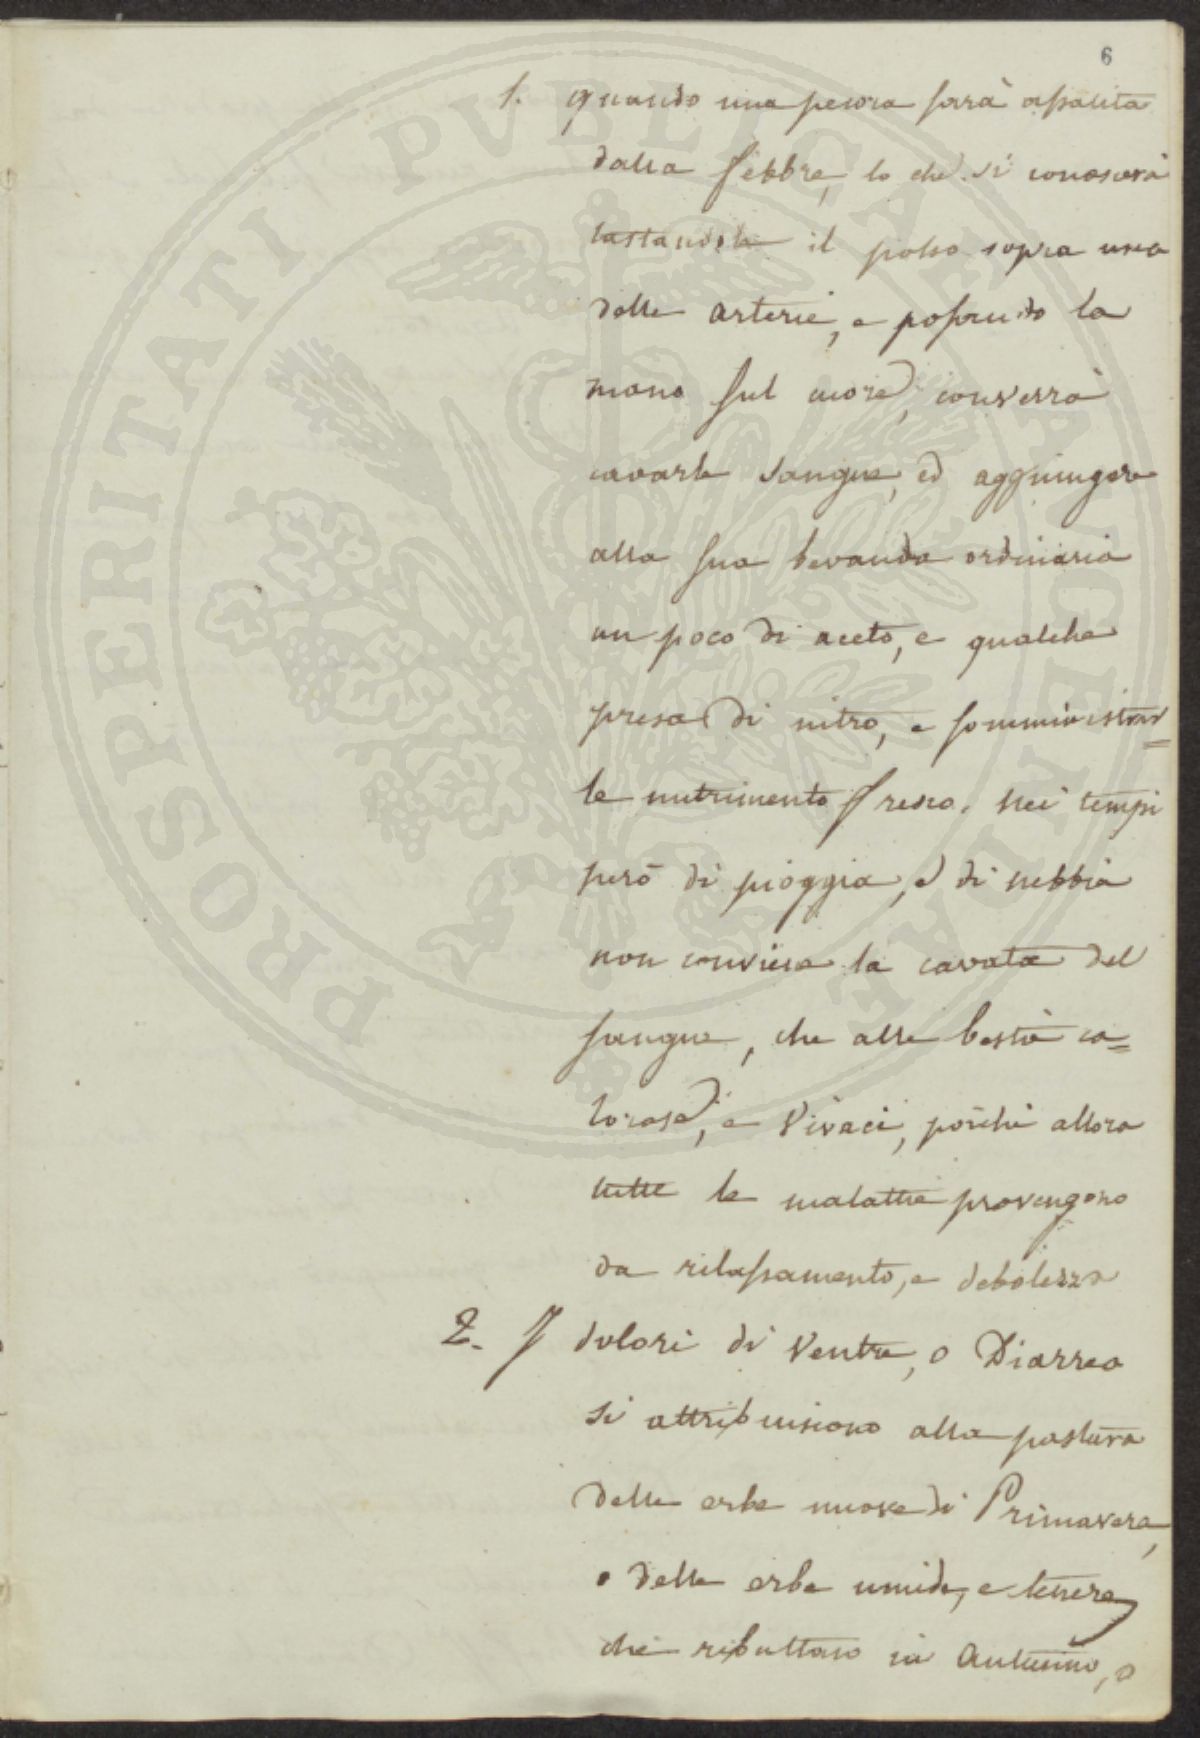 6
1. quando una pecora sarà assalita
dalla febbre, lo che si conoscerà
tastandole il polso sopra una
delle arterie, e posando la
mano sul cuore, converrà
cavarle sangue, ed aggiunger
alla sua bevanda ordinaria
un poco di aceto, e qualche
presa di nitro, e somministrar=
le nutrimento fresco. Nei tempi
però di pioggia, e di nebbia
non conviene la cavata del
sangue, che alle bestie ca=
lorose, e vivaci, poichè allora
tutte le malattie provengono
da rilassamento, e debolezza
2. I dolori di Ventre, o Diarrea
si attribuiscono alla pastura
delle erbe nuove di Primavera,
o delle erbe umide, e tenere
che ributtano in Autunno, o
PROSPERITATI PUBLICAE AUGENDAE